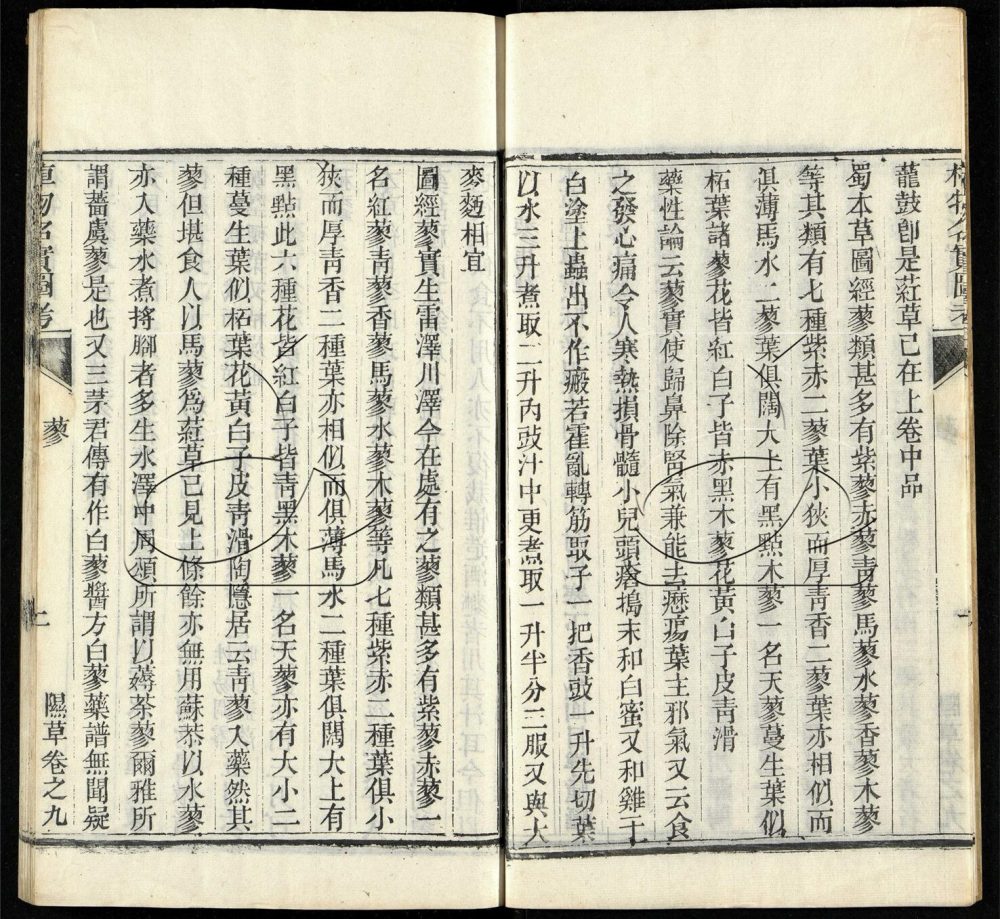 植物名實圖考
蘢鼓卽是葒草已在上卷中品
蜀本草圖經蓼類甚多有紫蓼赤蓼靑蓼馬蓼水蓼香蓼木蓼
等其類有七種紫赤二蓼葉小狹而厚靑香二蓼葉亦相似而
俱薄馬水二蓼葉俱闊大上有黑㸃木蓼一名天蓼蔓生葉似
柘葉諸蓼花皆紅白子皆赤黑木蓼花黃白子皮靑滑
藥性論云蓼實使歸鼻除腎氣兼能去癧瘍葉主邪氣又云食
之發心痛令人寒熱損骨髓小兒頭瘡搗末和白蜜又和雞子
白塗上蟲出不作瘢若霍亂轉筋取子一把香豉一升先切葉
以水三升煮取二升內豉汁中更煮取一升半分三服又與大
麥麪相宜
圖經蓼實生雷澤川澤今在處有之蓼類甚多有紫蓼赤蓼一
名紅蓼靑蓼香蓼馬蓼水蓼木蓼等凡七種紫赤二種葉俱小
狹而厚靑香二種葉亦相似而俱薄馬水二種葉俱闊大上有
黑㸃此六種花皆紅白子皆靑黑木蓼一名天蓼亦有大小二
種蔓生葉似柘葉花黃白子皮靑滑陶隱居云靑蓼入藥然其
蓼但堪食人以馬蓼爲葒草已見上條餘亦無用蘇恭以水蓼
亦入藥水煮捋腳者多生水澤中周頌所謂以薅荼蓼爾雅所
謂薔虞蓼是也又三茅君傳有作白蓼醬方白蓼藥譜無聞疑
植物名實圖考
蓼
隰草卷之九